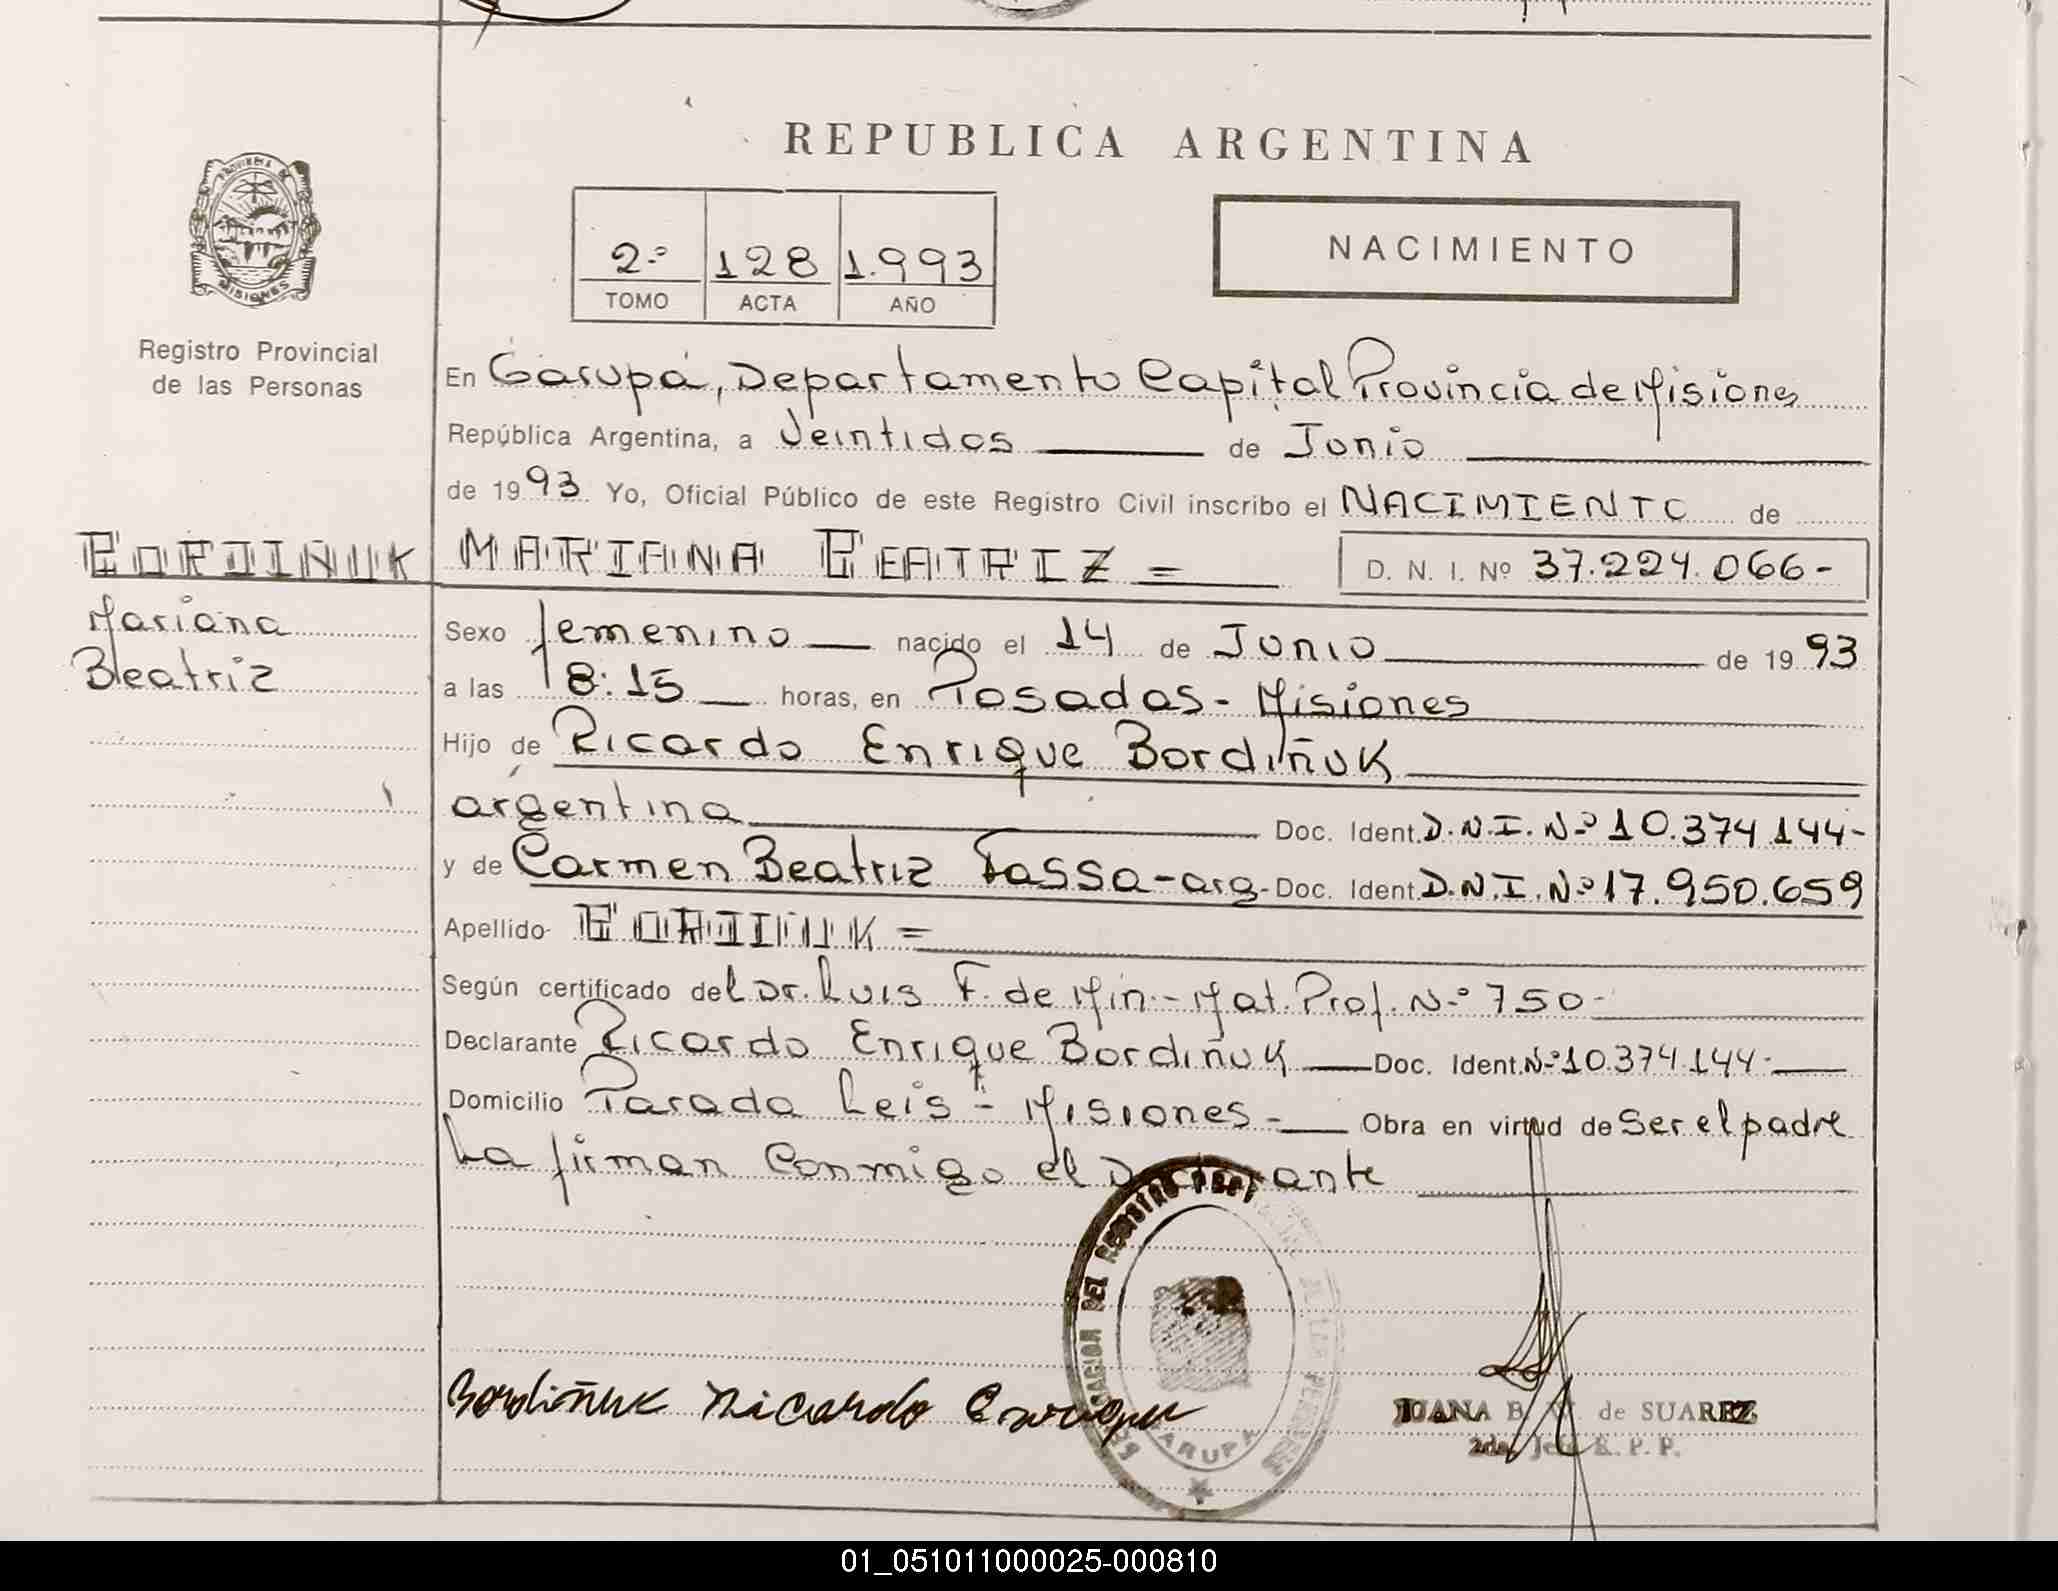 REPUBLICA ARGENTINA
PROVINCIA DE
MISIONES
2º 128 1.993
TOMO ACTA AÑO
NACIMIENTO
Registro Provincial
de las Personas
En Garupá, Departamento Capital Provincia de Misiones
República Argentina, a Veintidos de Junio
de 1993 Yo, Oficial Público de este Registro Civil inscribo el NACIMIENTO de
BORDIÑUK MARIANA BEATRIZ = D. N. I. Nº 37.224.066-
Mariana
Beatriz
Sexo femenino nacido el 14 de Junio de 1993
a las 18:15 horas, en Posadas - Misiones
Hijo de Ricardo Enrique Bordiñuk
argentina Doc. Ident. D.N.I. Nº 10.374.144-
y de Carmen Beatriz Fassa - arg- Doc. Ident. D.N.I. Nº 17.950.659
Apellido BORDIÑUK =
Según certificado del Dr. Luis F. de Min.- Mat. Prof. Nº 750-
Declarante Ricardo Enrique Bordiñuk Doc. Ident. Nº 10.374.144-
Domicilio Parada Leis - Misiones - Obra en virtud de Ser el padre
La firman Conmigo el Declarante
DEL REGISTRO
GARUPA
Bordiñuk Ricardo Enrique
JUANA B. de SUAREZ
2da. Jefe R. P. P.
01_051011000025-000810